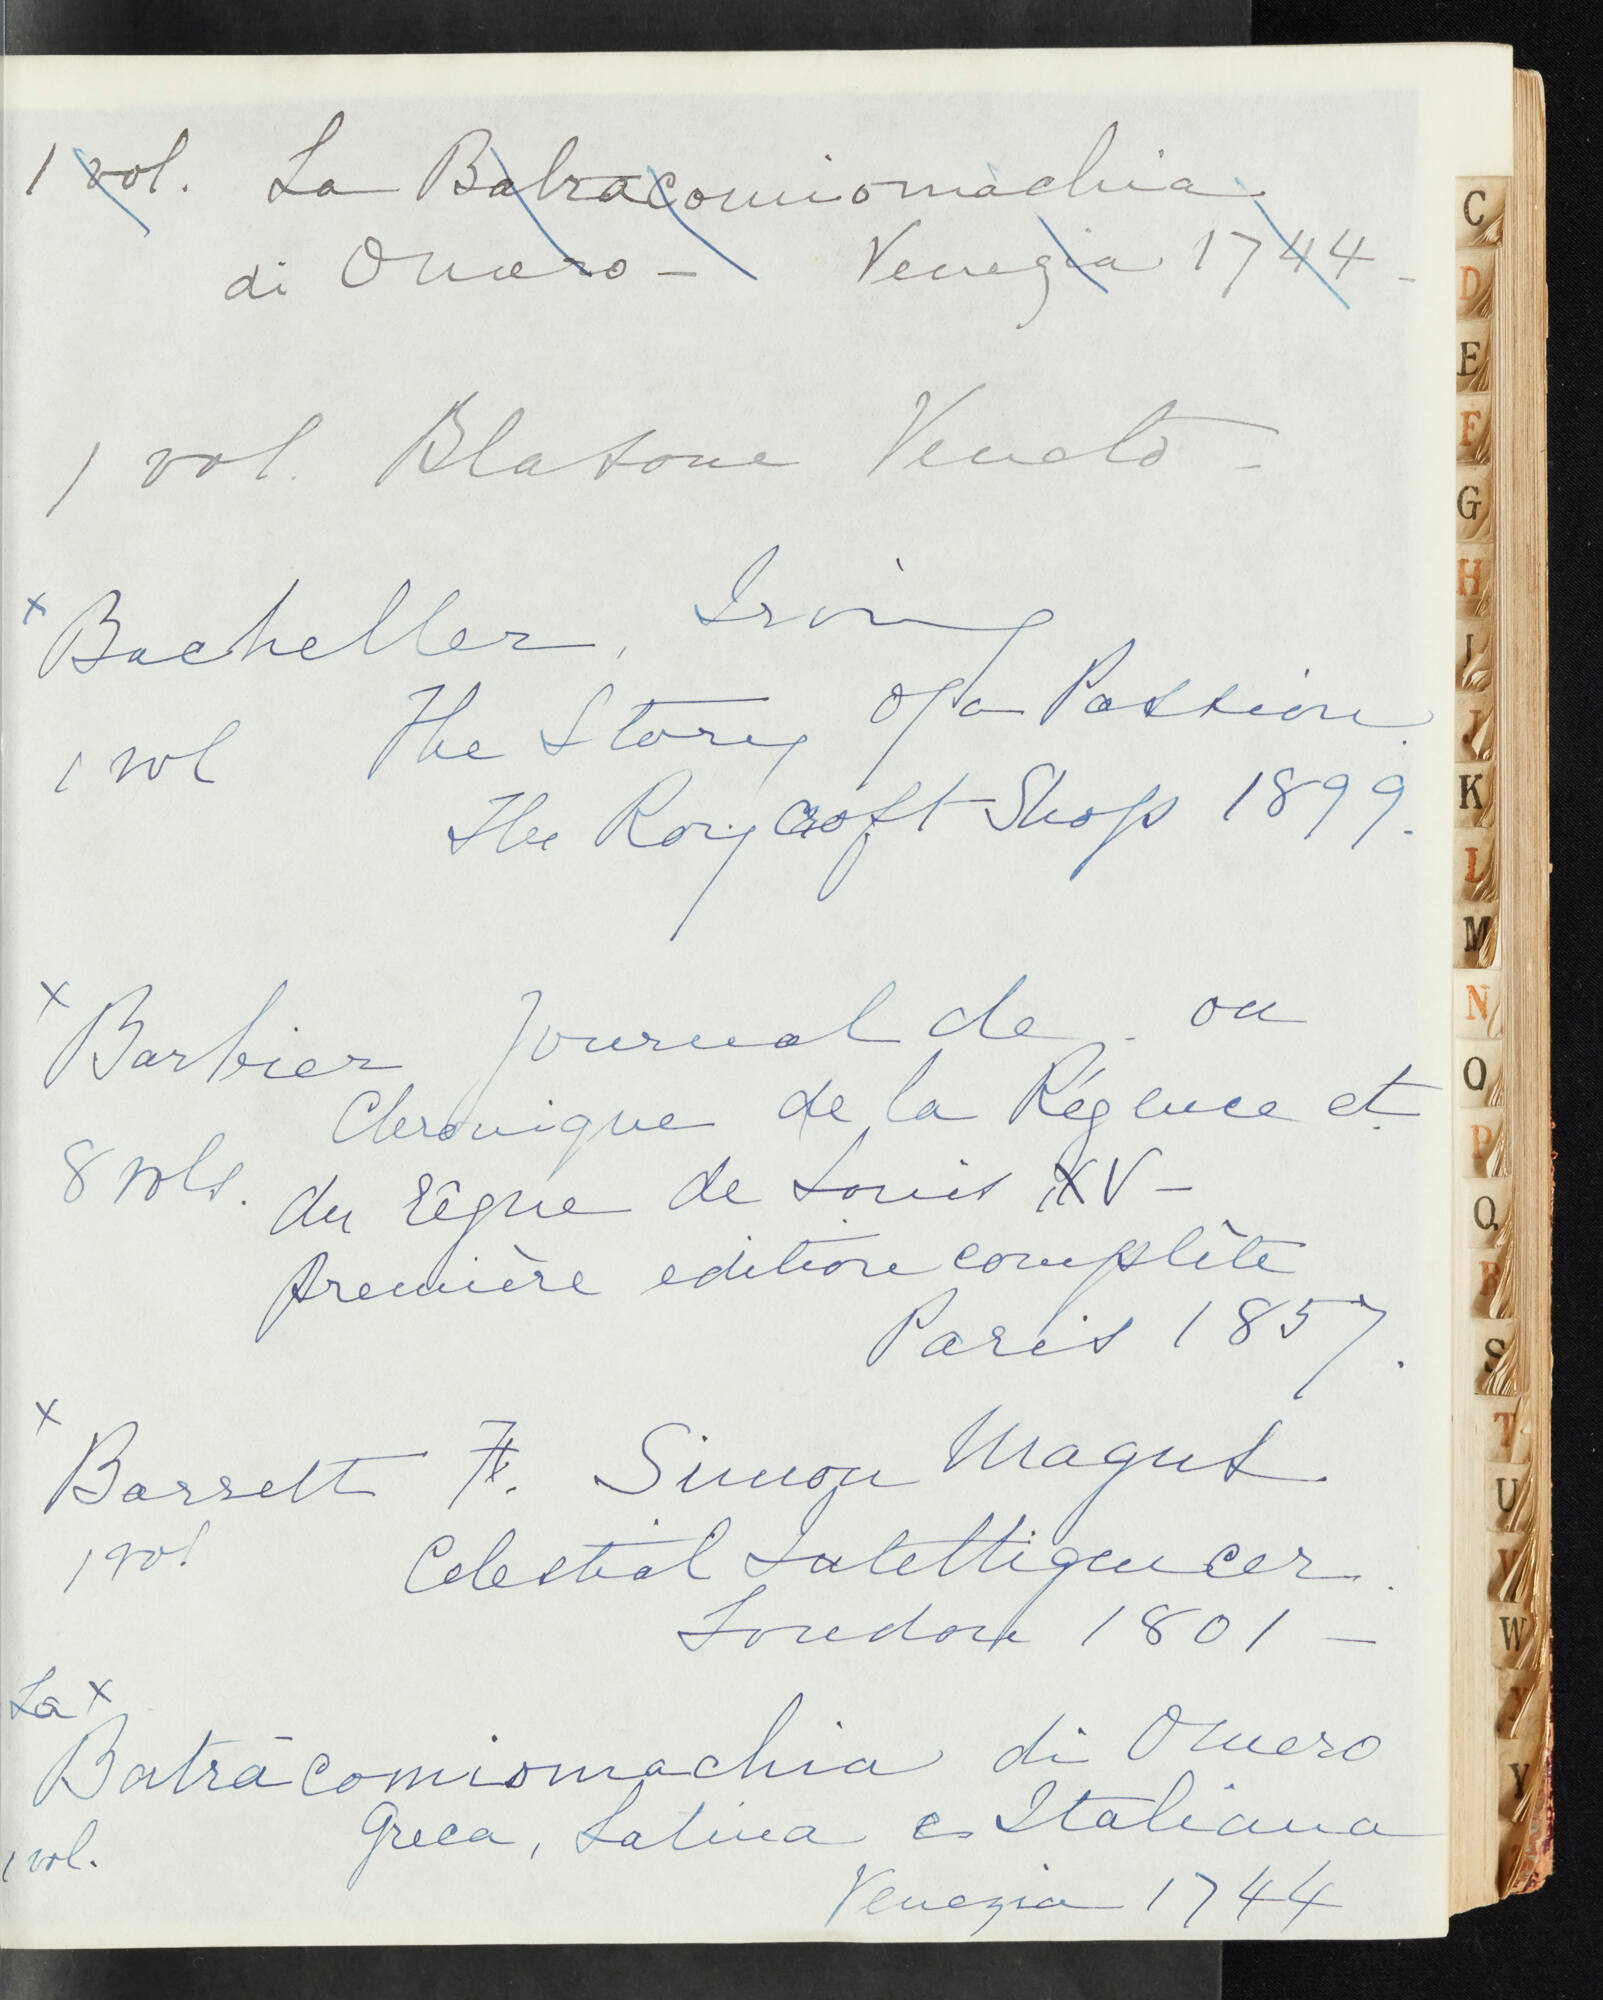 1 vol. La Batracomiomachia
di Omero – Venezia 1744 –
1 vol. Blasone Veneto –
x Bacheller, Irving
1 vol The Story of a Passion.
The Roycroft Shop 1899.
x Barbier Journal de . ou
Chronique de la Régence et
8 vols. du règne de Louis XV –
première edition complète
Paris 1857.
x Barrett F. Simon Magus
1 vol Celestial Intelligencer.
London 1801 –
La x
Batracomiomachia di Omero
Greca, Latina e Italiana
1 vol.
Venezia 1744
C
D
E
F
G
H
I
J
K
L
M
N
O
P
Q
R
S
T
U
V
W
X
Y